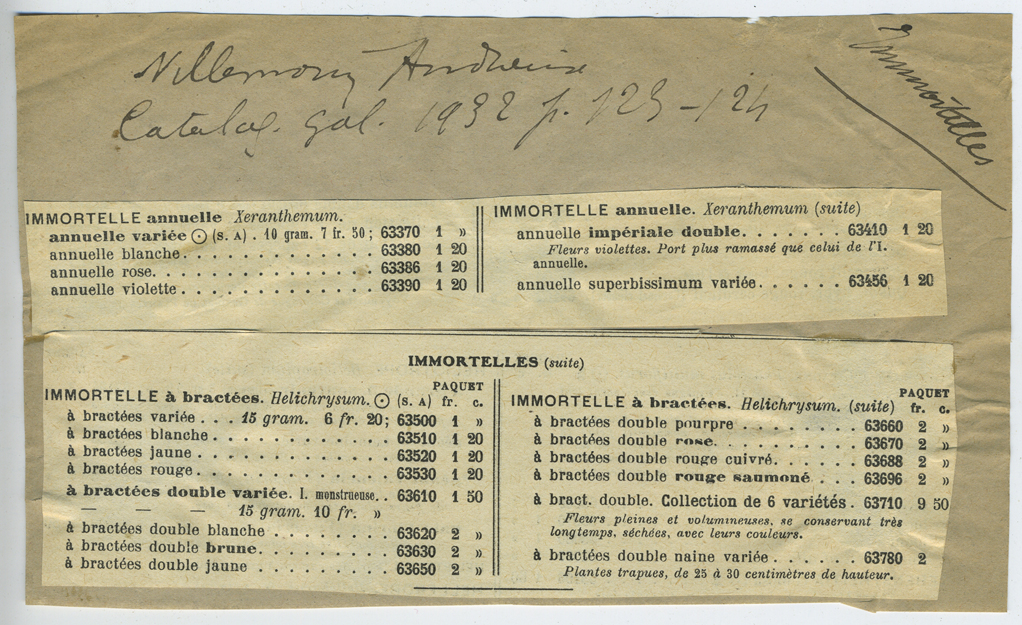 Immortelles
Catalog. gal. 1932 p. 123-124
IMMORTELLE annuelle Xeranthemum.
annuelle variée ☉ (S. A) . 10 gram. 7 fr. 50 ; 63370 1 »
annuelle blanche. . . . . . . . . . . . . 63380 1 20
annuelle rose. . . . . . . . . . . . . . . 63386 1 20
annuelle violette . . . . . . . . . . . . . 63390 1 20
IMMORTELLE annuelle. Xeranthemum (suite)
annuelle impériale double. . . . . . . 63410 1 20
Fleurs violettes. Port plus ramassé que celui de l'I.
annuelle.
annuelle superbissimum variée. . . . . . 63456 1 20
IMMORTELLES (suite)
PAQUET
IMMORTELLE à bractées. Helichrysum. ☉ (S. A) fr. c.
à bractées variée . . . 15 gram. 6 fr. 20; 63500 1 »
à bractées blanche . . . . . . . . . . . . 63510 1 20
à bractées jaune . . . . . . . . . . . . . 63520 1 20
à bractées rouge . . . . . . . . . . . . . 63530 1 20
à bractées double variée. I. monstrueuse. . 63610 1 50
— — — 15 gram. 10 fr. »
à bractées double blanche . . . . . . . . 63620 2 »
à bractées double brune. . . . . . . . . 63630 2 »
à bractées double jaune . . . . . . . . . 63650 2 »
PAQUET
IMMORTELLE à bractées. Helichrysum. (suite) fr. c.
à bractées double pourpre . . . . . . . . 63660 2 »
à bractées double rose. . . . . . . . . . 63670 2 »
à bractées double rouge cuivré. . . . . . 63688 2 »
à bractées double rouge saumoné. . . . 63696 2 »
à bract. double. Collection de 6 variétés . 63710 9 50
Fleurs pleines et volumineuses, se conservant très
longtemps, séchées, avec leurs couleurs.
à bractées double naine variée . . . . . . 63780 2
Plantes trapues, de 25 à 30 centimètres de hauteur.